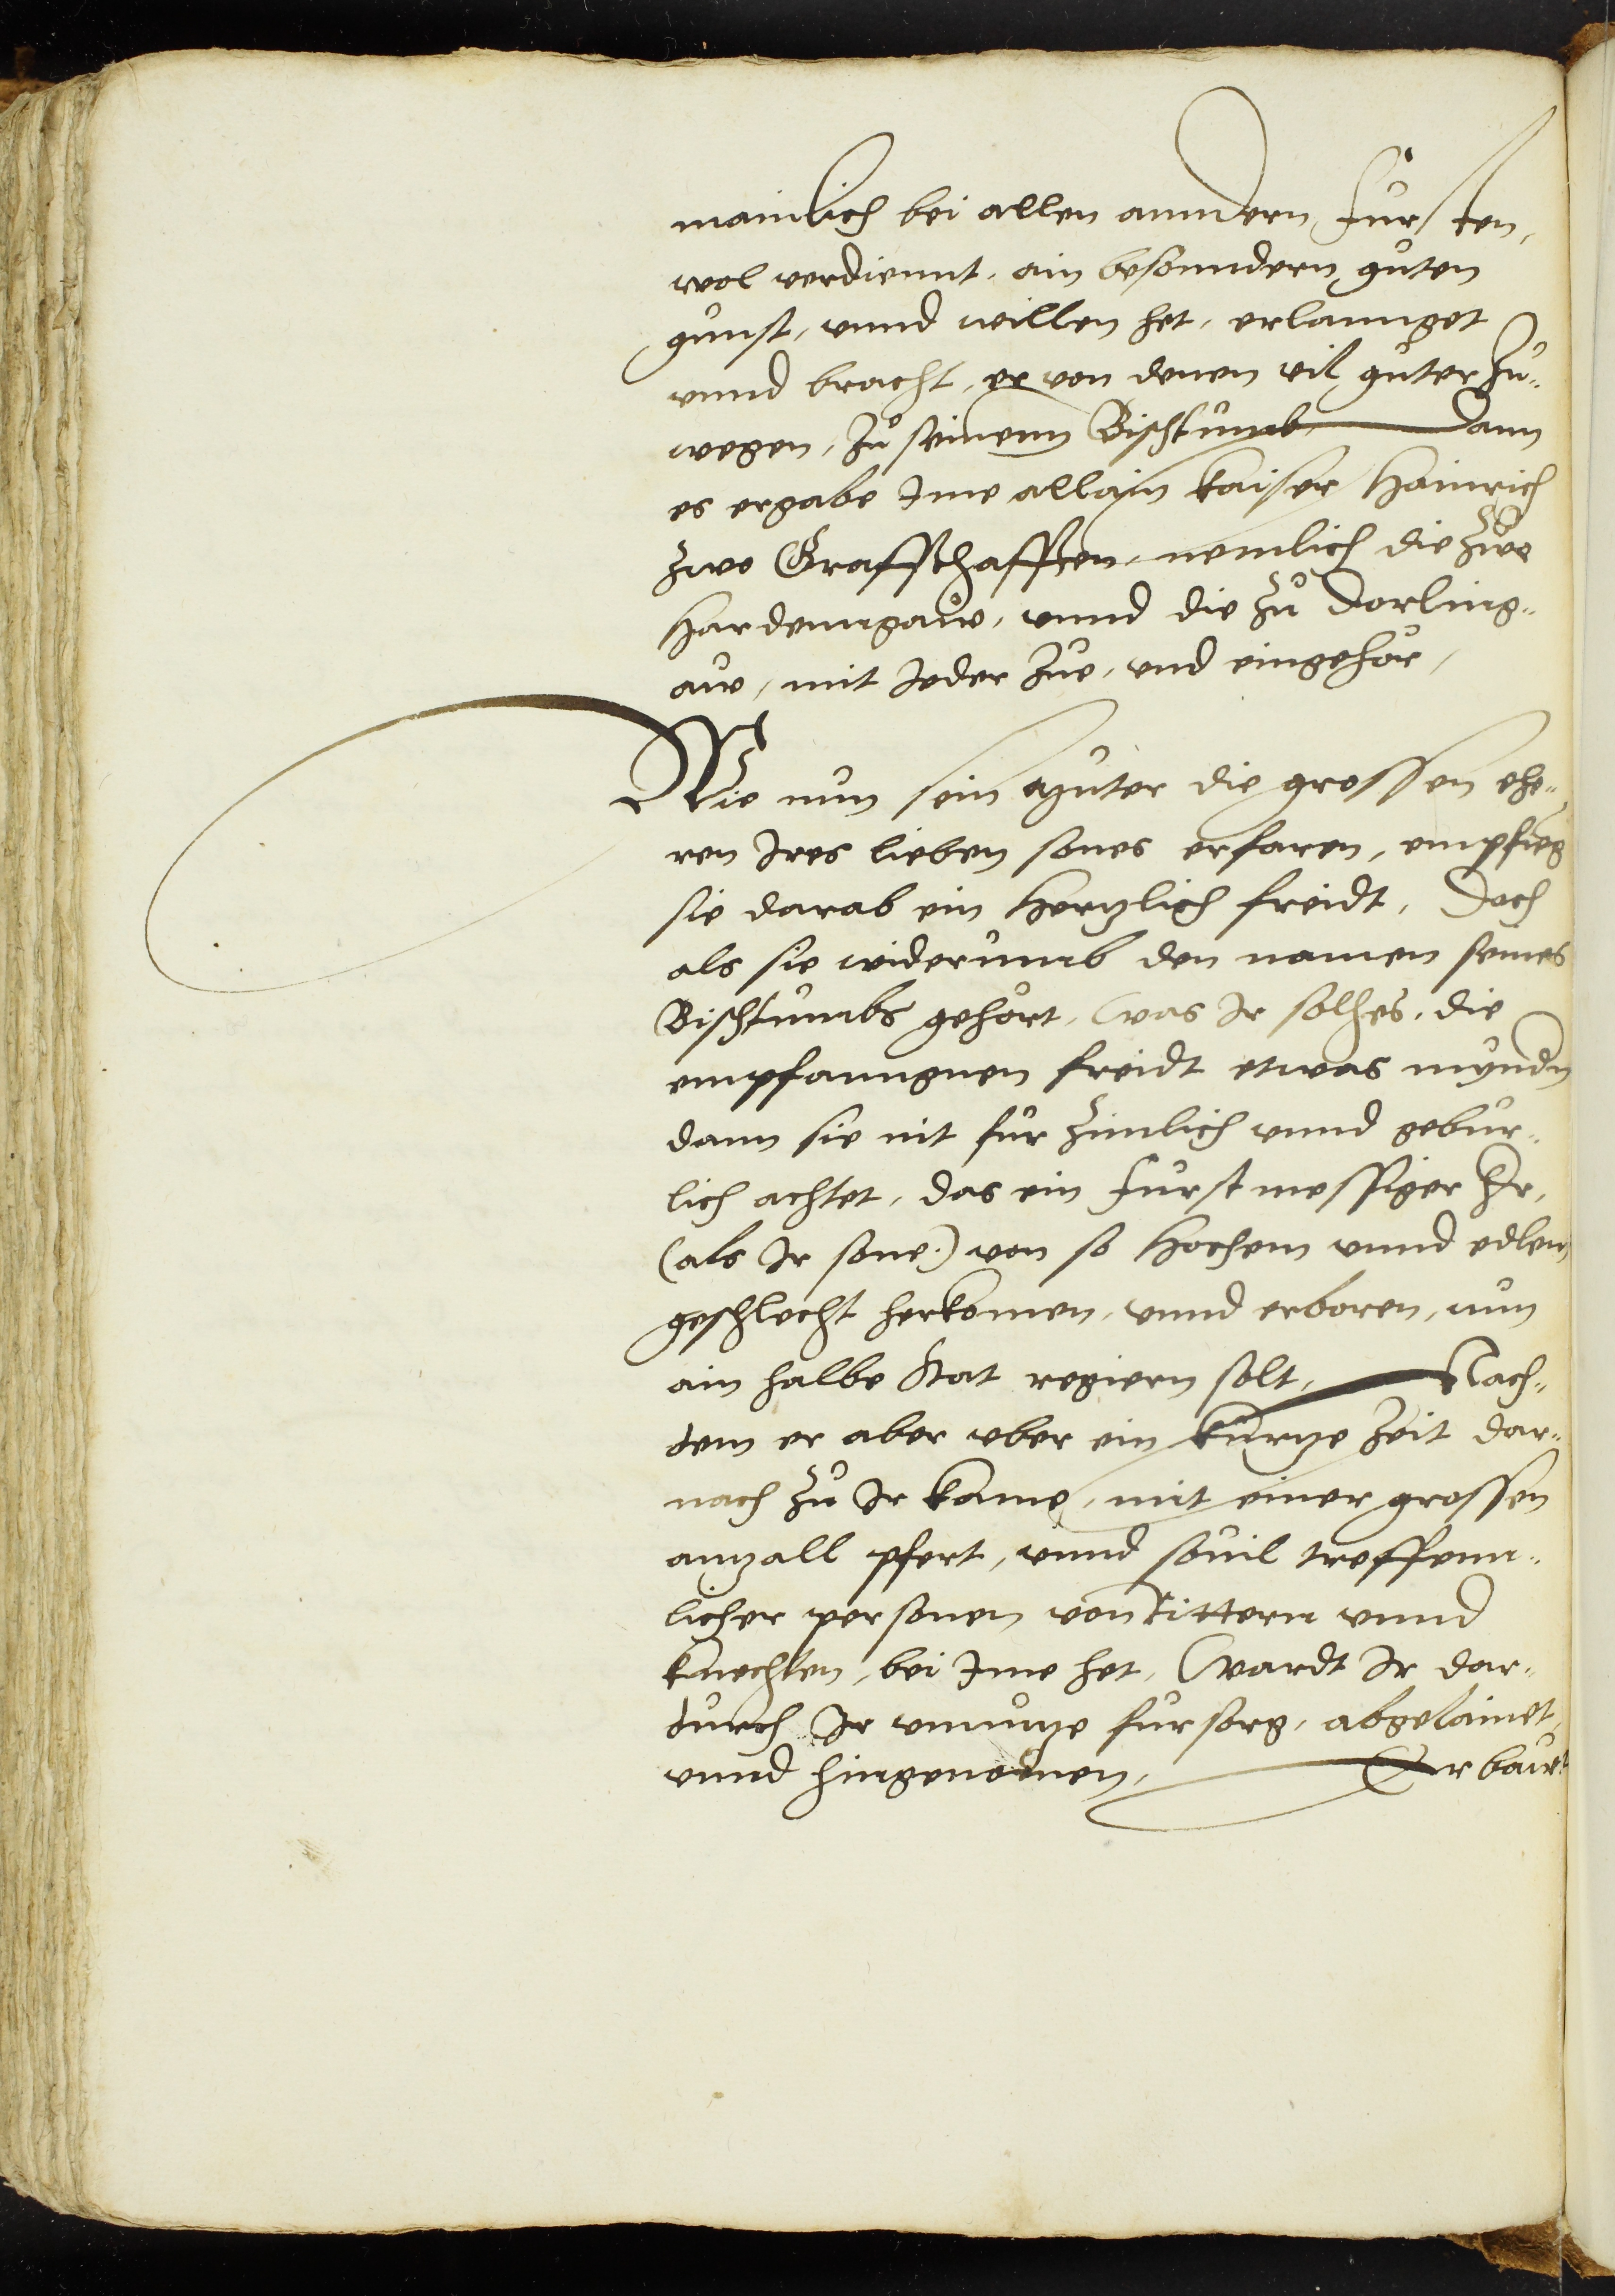 mainlich bei allen anndern Fursten,
wol verdiennt, ain besonndern guten
gunst, vnnd willen het, erlannget
vnnd bracht, er von denen vil guter zu¨
wegen, zu seinenn Bischtumb, Dann
es ergabe Ime allain kaiser Hainrich
zwo Graffschafften, nemlich die zwo
Hardenngaw, vnnd die zu Dorling¨
aw, mit Jeder zue, vnd eingehör,
Wie nun sein Muter die grossen ehe¨
ren Ires lieben sones erfaren, empfieg
sie darab ein hertzlich freidt, Doch
als sie widerumb den namen seines
Bischtumbs gehört, Was Ir solhes, die
empfanngnen freidt etwas mynndn
dann sie nit für zimlich vnnd gebür¨
lich achtet, das ein Furstmessiger Hr,
(als Ir sone.) von so hochem vnnd edlem
geschlecht herkomen, vnnd erboren, nun
ain halbe Stat regiern solt, Nach¨
dem er aber vber ein kurtze zeit dar¨
nach zu Ir kame, mit einer grossen
anzall pfert, vnnd souil treffenn¨
licher personen von Rittern vnnd
knechten, bei Ime het, Wardt Ir dar¨
durch Ir vnnutze fursorg, abgelainet,
vnnd hingenomen, Er bawt